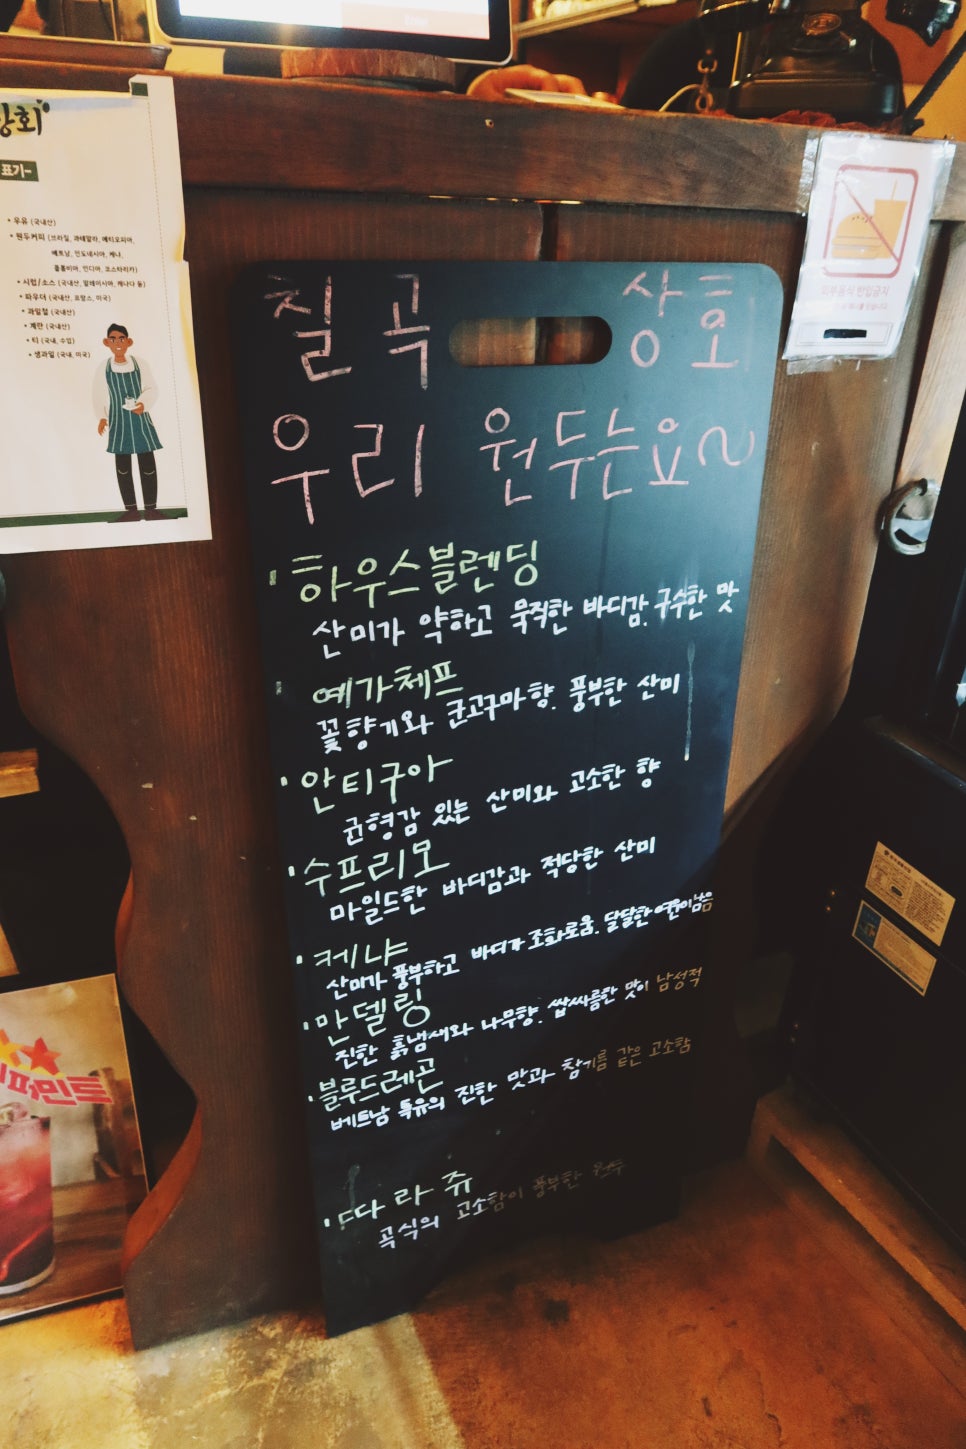 상회
표기~
• 우유 (국내산)
• 원두커피 (브라질, 과테말라, 에티오피아,
베트남, 인도네시아, 케냐,
콜롬비아, 인디아, 코스타리카)
• 시럽/소스 (국내산, 말레이시아, 캐나다 등)
• 파우더 (국내산, 프랑스, 미국)
• 과일절 (국내산)
• 계란 (국내산)
• 티 (국내, 수입)
• 생과일 (국내, 미국)
외부음식 반입금지
칠곡 상회
우리 원두는요~
· 하우스블렌딩
산미가 약하고 묵직한 바디감. 구수한 맛
· 예가체프
꽃향기와 군고구마향. 풍부한 산미
· 안티구아
균형감 있는 산미와 고소한 향
· 수프리모
마일드한 바디감과 적당한 산미
· 케냐
산미가 풍부하고 바디가 조화로움. 달달한 여운이남음
· 만델링
진한 흙냄새와 나무향. 쌉싸름한 맛이 남성적
· 블루드레곤
베트남 특유의 진한 맛과 참기름 같은 고소함
· 따라쥬
곡식의 고소함이 풍부한 원두
퍼민트